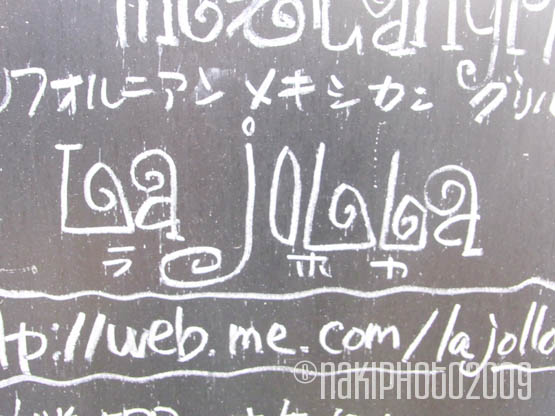 リフォルニアン メキシカン グリル
La jolla
ラ ホ ヤ
tp://web.me.com/lajolla
©NAKIPHOTO2009